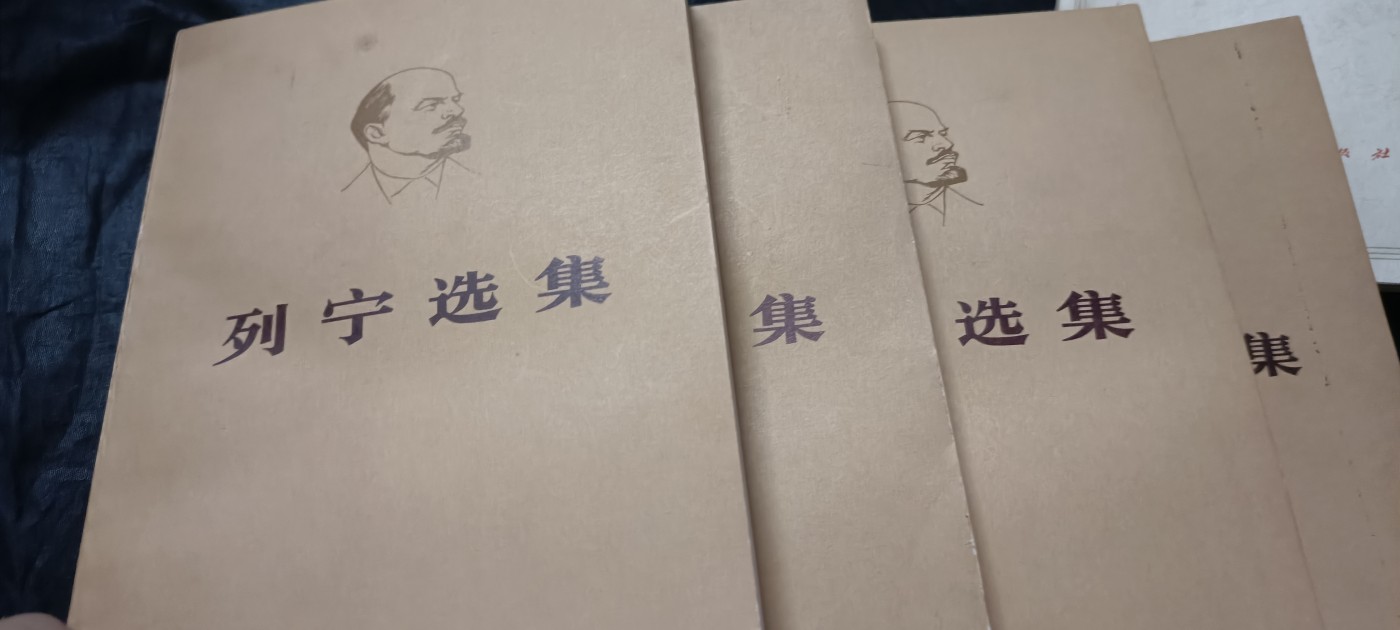 列宁选集
集
选集
集
社